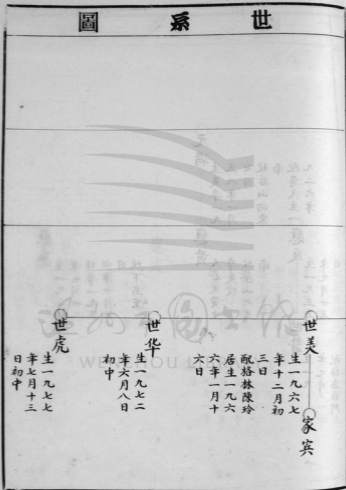 世系圖
世美
生一九六七
年十二月初
三日
配格林陳玲
居生一九六
六年一月十
六日
家宾
世华
生一九七二
年六月八日
初中
世虎
生一九七七
年七月十三
日初中